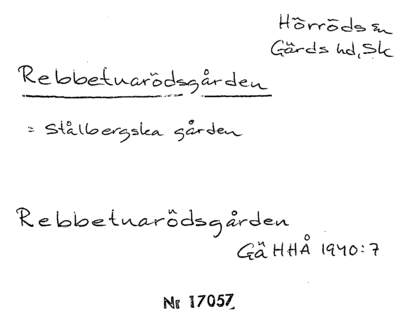 Hörröds sn
Gärds hd, Sk
Rebbetuarödsgården
= Stålbergska gården
Rebbetuarödsgården
Gä HHÅ 1940:7
Nr 17057